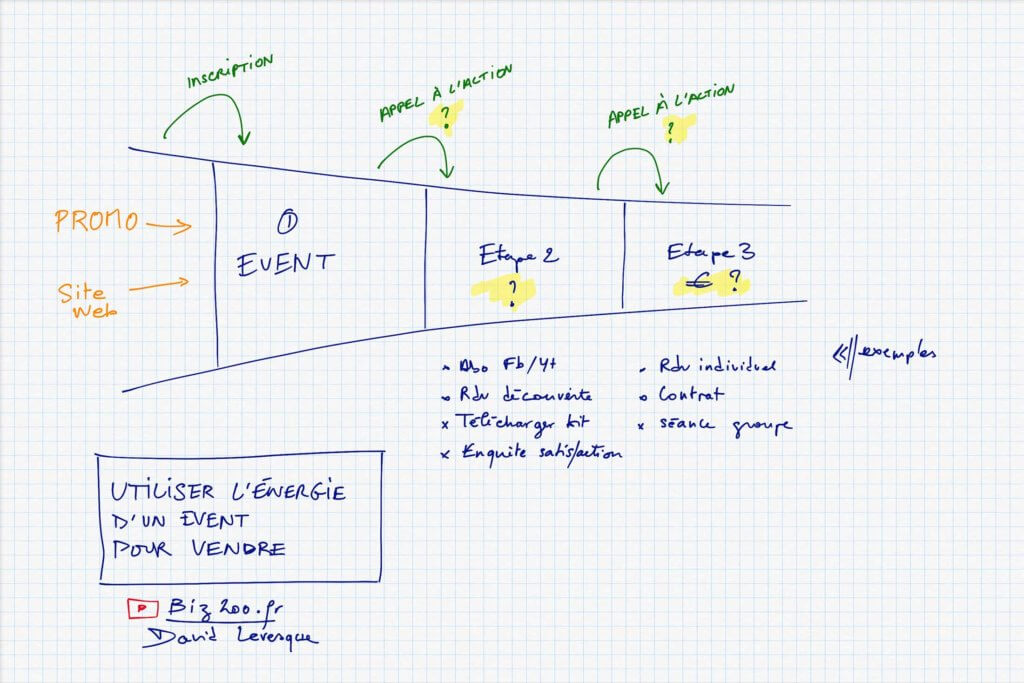 INSCRIPTION
APPEL À L'ACTION
?
APPEL À L'ACTION
?
PROMO
Site
Web
①
EVENT
Etape 2
?
Etape 3
€ ?
<< exemples
× Abo Fb/Yt
• Rdv découverte
× Télécharger kit
× Enquite satisfaction
• Rdv individuel
• Contrat
× séance groupe
UTILISER L'ÉNERGIE
D'UN EVENT
POUR VENDRE
Biz200.fr
David Levesque